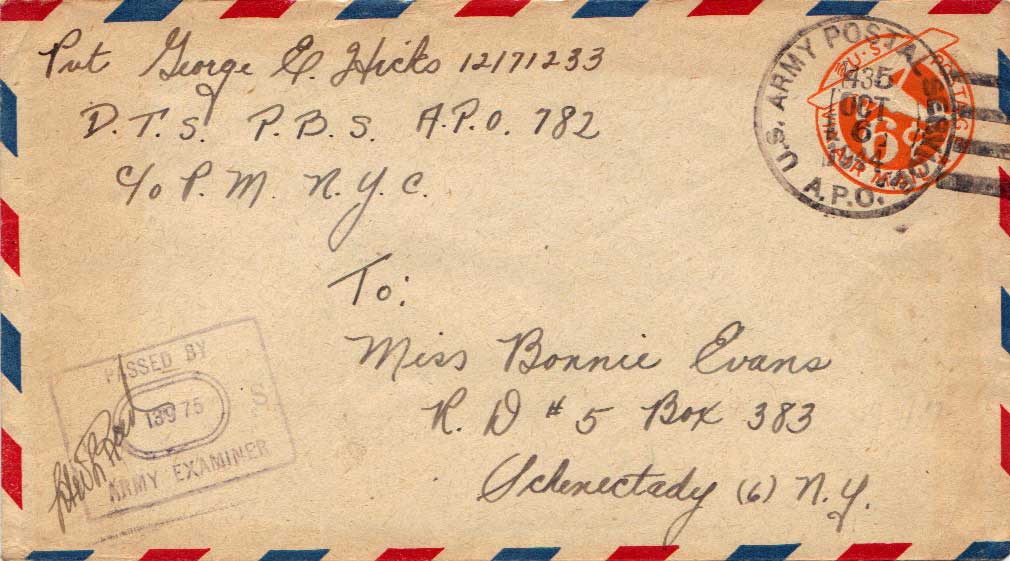 Pvt George E. Hicks 12171233
D.T.S. P.B.S. A.P.O. 782
c/o P.M. N.Y.C.
U.S. ARMY POSTAL SERVICE
A.P.O.
435
OCT
6
U.S. POSTAGE
6¢
VIA AIR MAIL
To:
Miss Bonnie Evans
R. D # 5 Box 383
Schenectady (6) N.Y.
PASSED BY
S.
ARMY EXAMINER